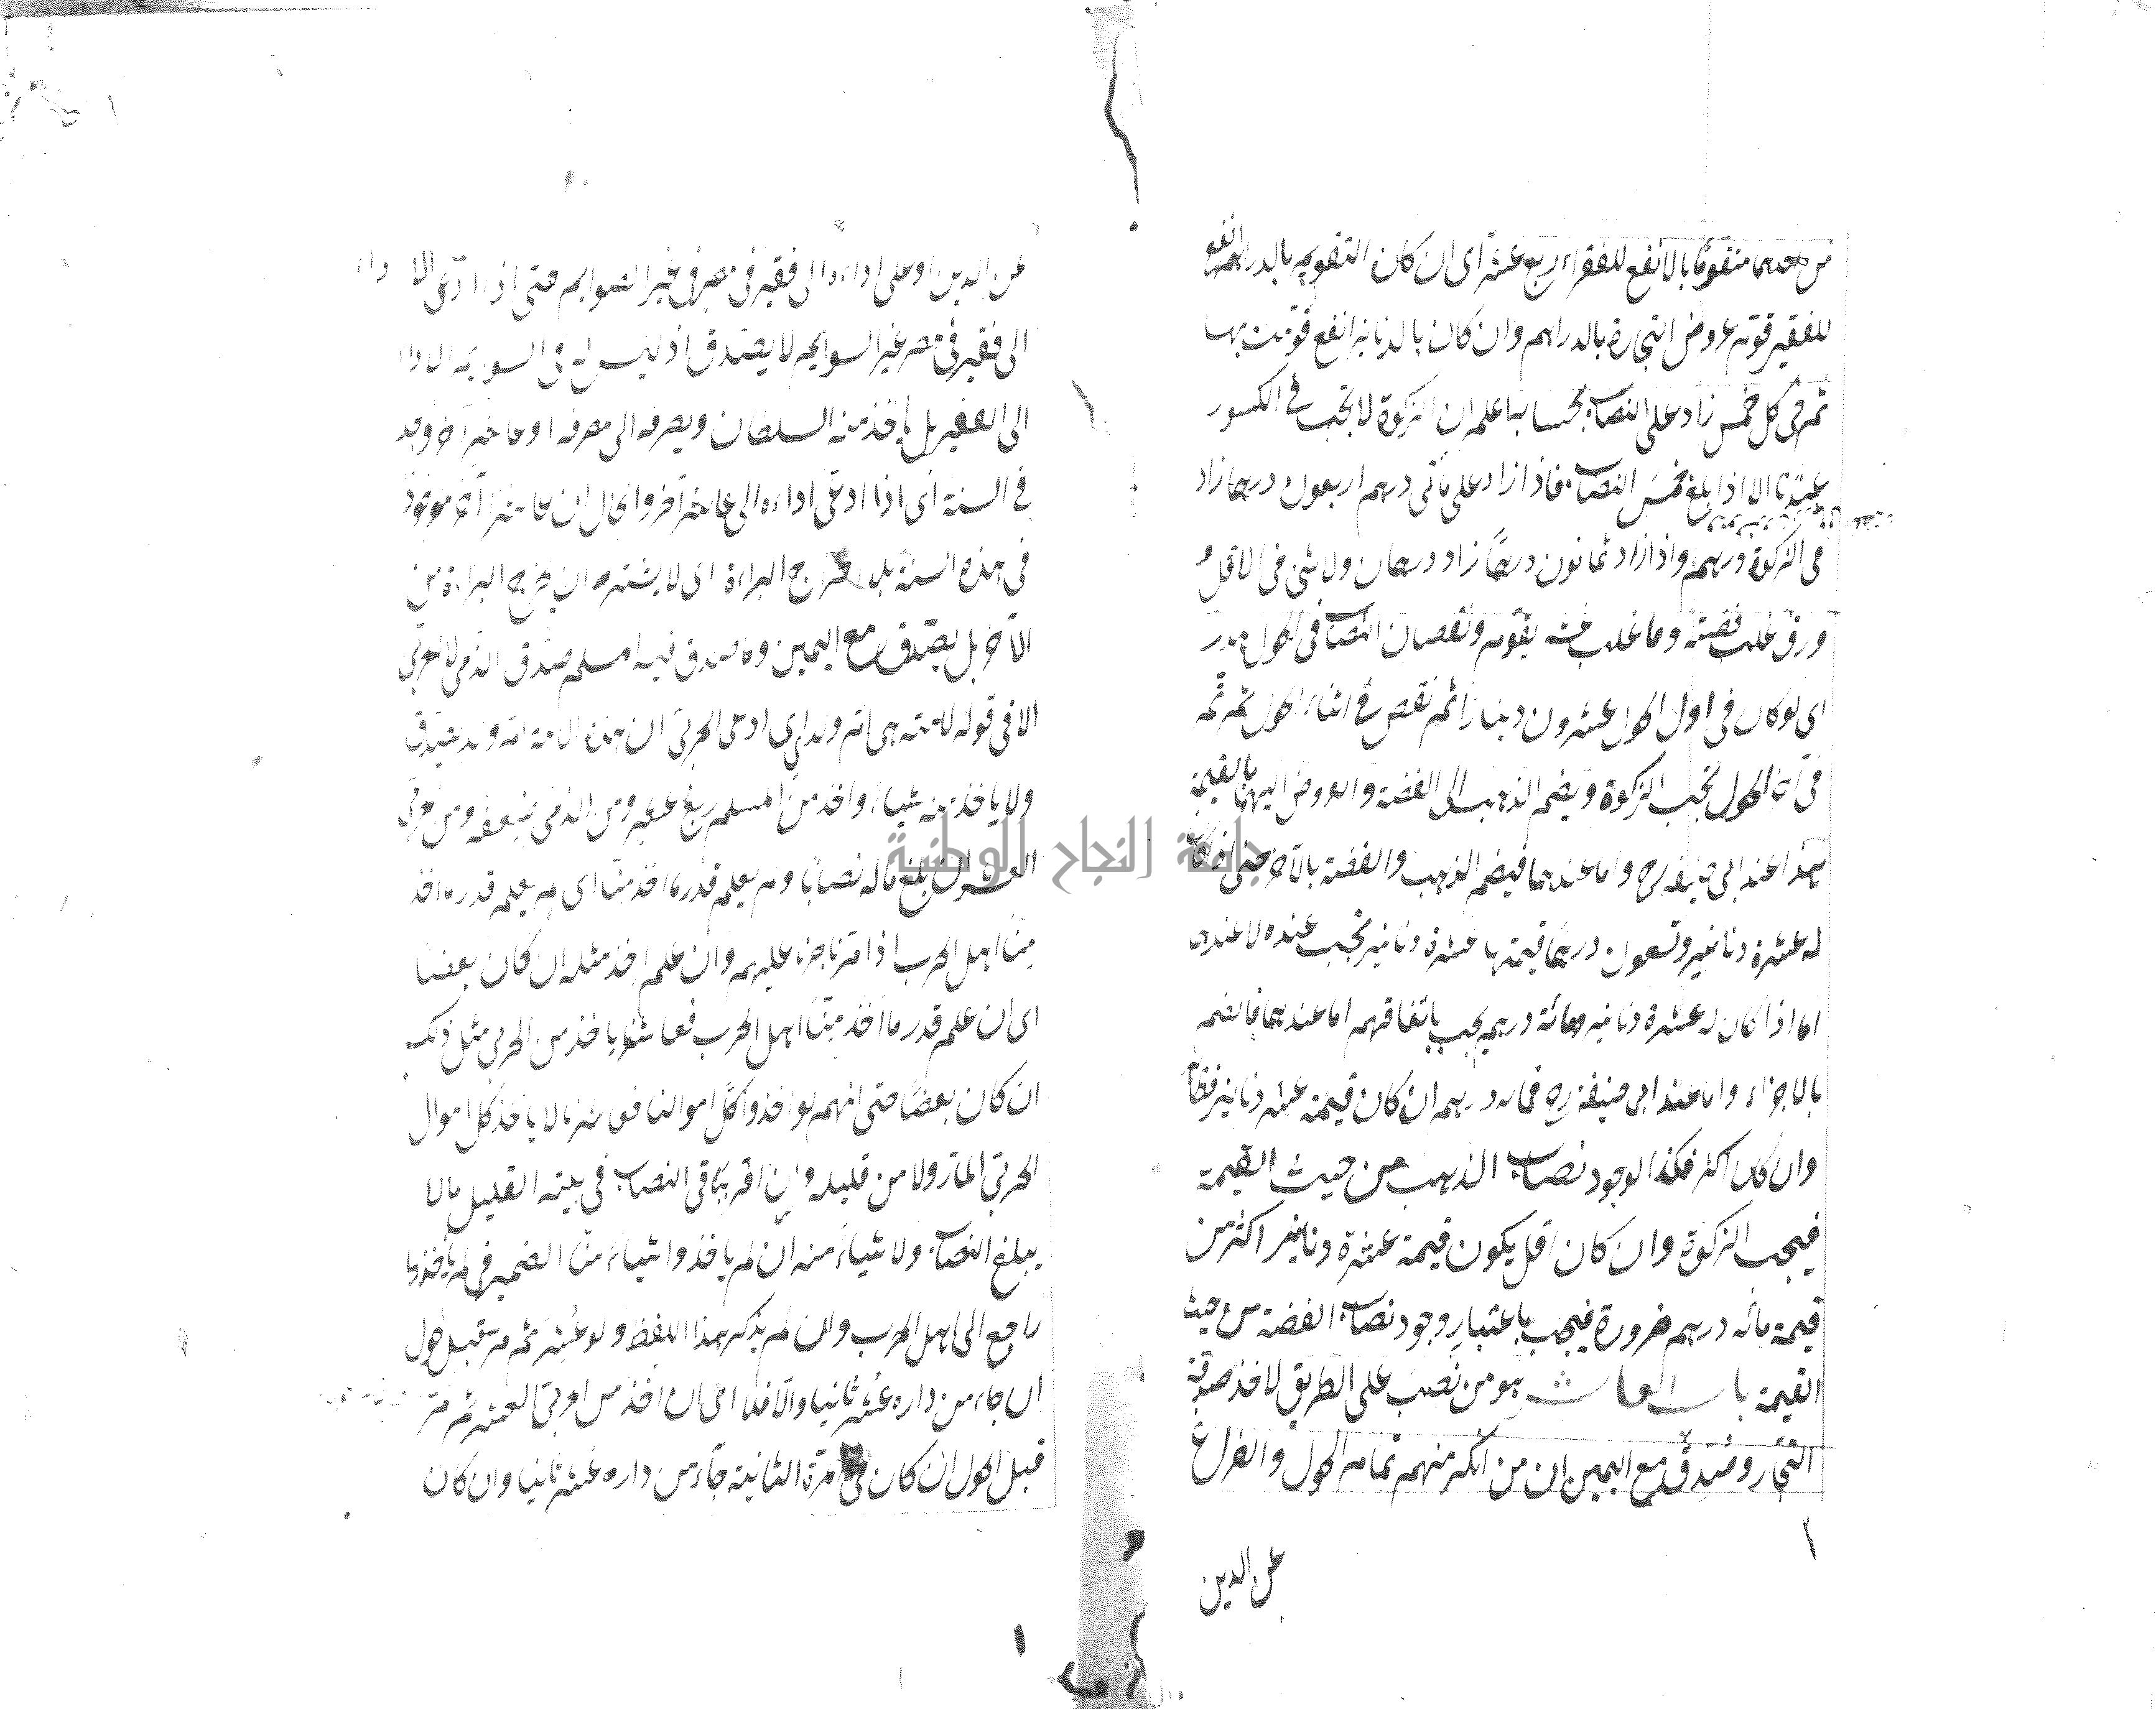 من احدهما مقوما بالانفع للفقراء ربع عشر اى ان كان التقويم بالدراهم انفع
للفقير قوم عروض التجارة بالدراهم وان كان بالدنانير انفع قومت بها
ثم فى كل خمس زاد على النصاب بحسابه اعلم ان الزكوة لا تجب فى الكسور
عندنا الا اذا بلغ خمس النصاب فاذا زاد على مأتى درهم اربعون درهما زاد
فى الزكوة درهم واذا زاد ثمانون درهما زاد درهمان ولا شئ فى الاقل و
ورق غلب فضته وما غلب غشه يقوم ونقصان النصاب فى الحول هدر
اى لو كان فى اول الحول عشرون دينارا ثم نقص فى اثناء الحول ثم تم
فى آخر الحول تجب الزكوة ويضم الذهب الى الفضة والعروض اليهما بالقيمة
هذا عند ابى حنيفه رح واما عندهما فيضم الذهب والفضة بالاجزاء حتى اذا كان
له عشرة دنانير وتسعون درهما قيمتها عشرة دنانير تجب عنده لا عندهما
اما اذا كان له عشرة دنانير ومائة درهم يجب باتفاقهم اما عندهما فالضم
بالاجزاء واما عند ابى حنيفه رح فمائة درهم ان كان قيمته عشرة دنانير فظاهر
وان كان اكثر فكذا لوجود نصاب الذهب من حيث القيمة
فيجب الزكوة وان كان اقل يكون قيمة عشرة دنانير اكثر من
قيمة مائه درهم ضرورة فيجب باعتبار وجود نصاب الفضة من حيث
القيمة باب العاشر هو من نصب على الطريق لاخذ صدقة
التجار وصدق مع اليمين ان من انكر منهم تمام الحول والفراغ
عن الدين
جامعة النجاح الوطنية
عن الدين او على اداءه الى فقير فى مصر فى غير السوايم حتى اذا ادعى الاداء
الى فقير فى مصر غير السوايم لا يصدق اذ ليس له فى السوايم الاداء
الى الفقير بل يأخذ منه السلطان ويصرفه الى مصرفه او عاشر آخر وجد
فى السنة اى اذا ادعى اداءه الى عاشر آخر والحال ان عاشرا آخر موجود
فى هذه السنة بلا اخراج البراءة اى لا يشترط ان يخرج البراءة من
الآخر بل يصدق مع اليمين وما صدق فيه المسلم صدق الذمى لا الحربى
الا فى قوله لامته هى ام ولدى اى ادعى الحربى ان هذه الامة ام ولد يصدق
ولا ياخذ منه شيا واخذ من المسلم ربع عشر ومن الذمى ضعفه ومن حربى
العشر ان بلغ ماله نصابا ولم يعلم قدر ما اخذ منا اى لم يعلم قدر ما اخذ
منا اهل الحرب اذا مر تاجرنا عليهم وان علم اخذ مثله ان كان بعضا
اى ان علم قدر ما اخذ منا اهل الحرب فعاشرنا ياخذ من الحربى مثل ذلك
ان كان بعضا حتى انهم لو اخذوا كل اموالنا فعاشرنا لا ياخذ كل اموال
الحربى المار ولا من قليله وان اقر بباقى النصاب فى بيته القليل ما لا
يبلغ النصاب ولا شياء منه ان لم ياخذوا شياء منا الضمير فى لم يأخذوا
راجع الى اهل الحرب وان لم يذكر بهذا اللفظ ولو عشر ثم مر قبل حول
ان جاء من داره عشر ثانيا والا فلا اى ان اخذ من الحربى العشر ثم مر
قبل الحول ان كان فى المرة الثانية جآء من داره عشر ثانيا وان كان